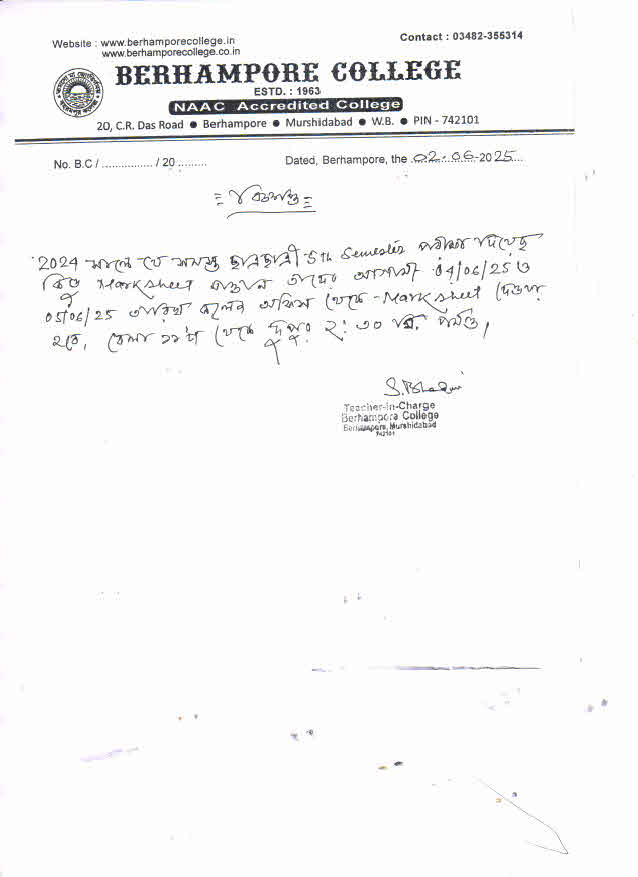 Website : www.berhamporecollege.in
www.berhamporecollege.co.in
Contact : 03482-355314
BERHAMPORE COLLEGE
ESTD. : 1963
NAAC Accredited College
20, C.R. Das Road ● Berhampore ● Murshidabad ● W.B. ● PIN - 742101
No. B.C / ................ / 20 .........
Dated, Berhampore, the 02.06-2025
বিজ্ঞপ্তি
2024 সালে যে সমস্ত ছাত্রছাত্রী 5th Semester পরীক্ষা দিয়েছে
কিন্তু Marksheet তাদের আগামী 04/06/25 ও
05/06/25 তারিখ কলেজ অফিস থেকে Marksheet দেওয়া
হবে, বেলা ১১ টা থেকে দুপুর ২:৩০ মি. পর্যন্ত।
S. Bhaduri
Teacher-in-Charge
Berhampore College
Berhampore, Murshidabad
742101